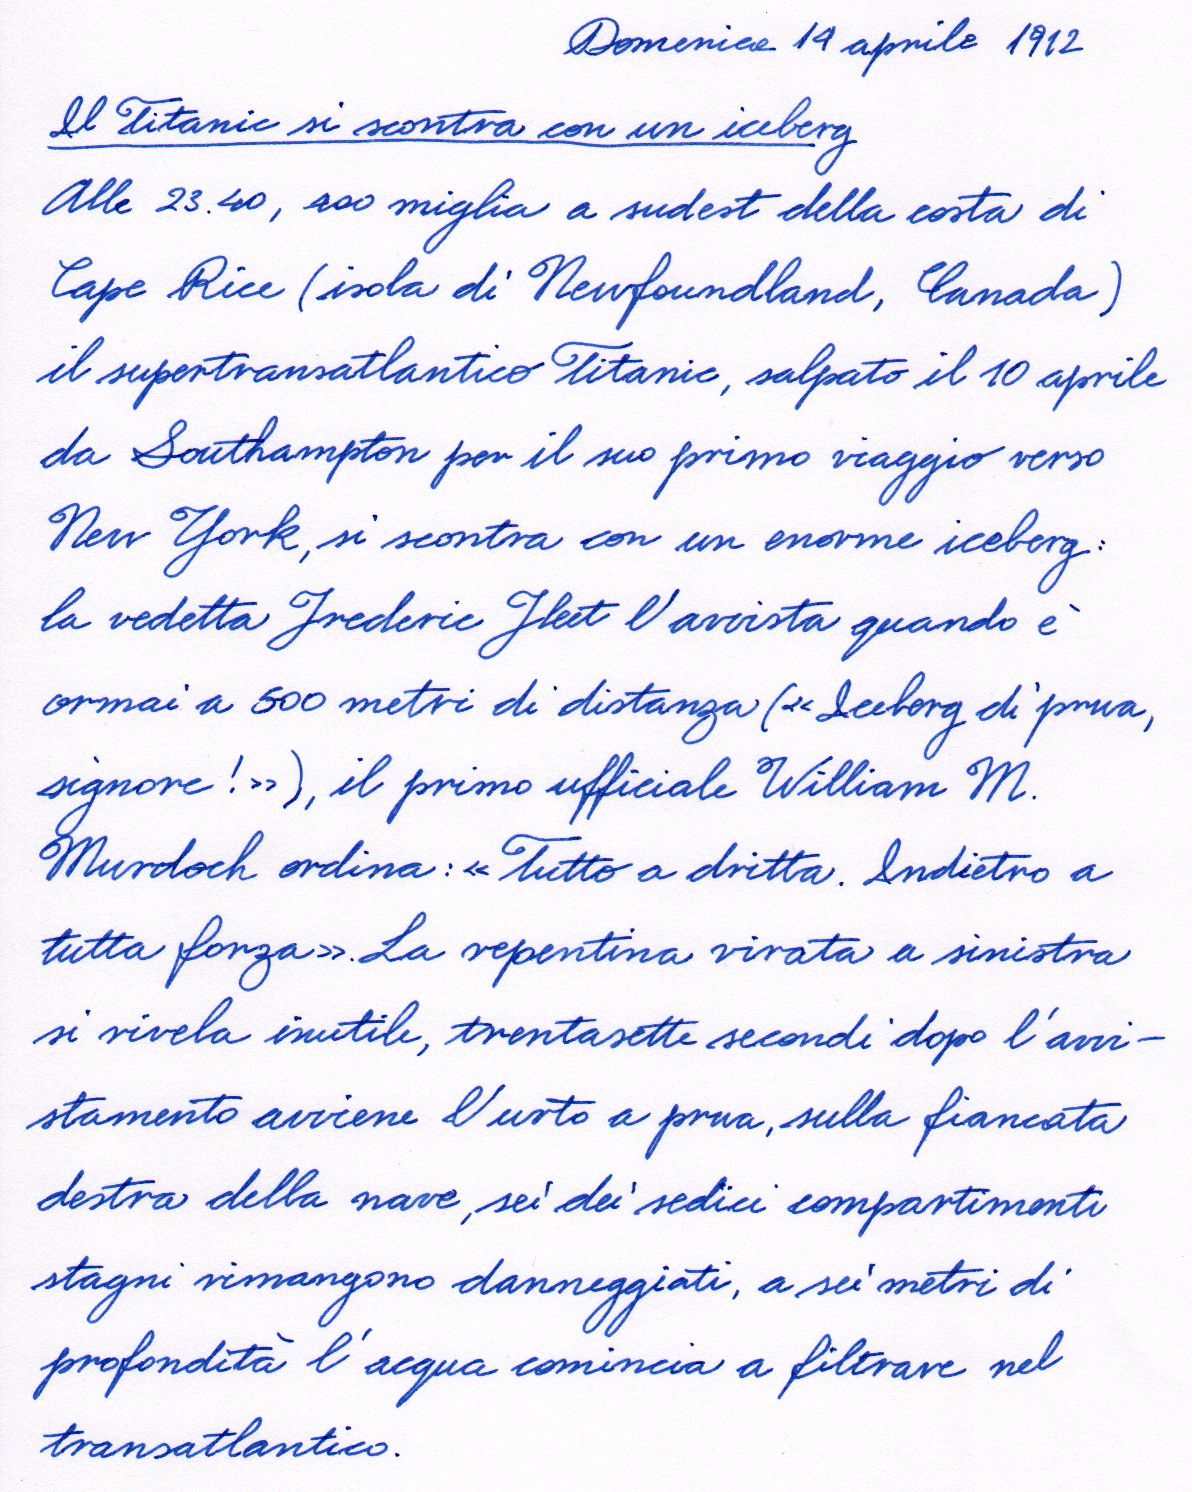 Domenica 14 aprile 1912
Il Titanic si scontra con un iceberg
Alle 23.40, 400 miglia a sudest della costa di
Cape Rice (isola di Newfoundland, Canada)
il supertransatlantico Titanic, salpato il 10 aprile
da Southampton per il suo primo viaggio verso
New York, si scontra con un enorme iceberg:
la vedetta Frederic Fleet l'avvista quando è
ormai a 500 metri di distanza (« Iceberg di prua,
signore!»), il primo ufficiale William M.
Murdoch ordina: « Tutto a dritta. Indietro a
tutta forza». La repentina virata a sinistra
si rivela inutile, trentasette secondi dopo l'avvi-
stamento avviene l'urto a prua, sulla fiancata
destra della nave, sei dei sedici compartimenti
stagni rimangono danneggiati, a sei metri di
profondità l'acqua comincia a filtrare nel
transatlantico.